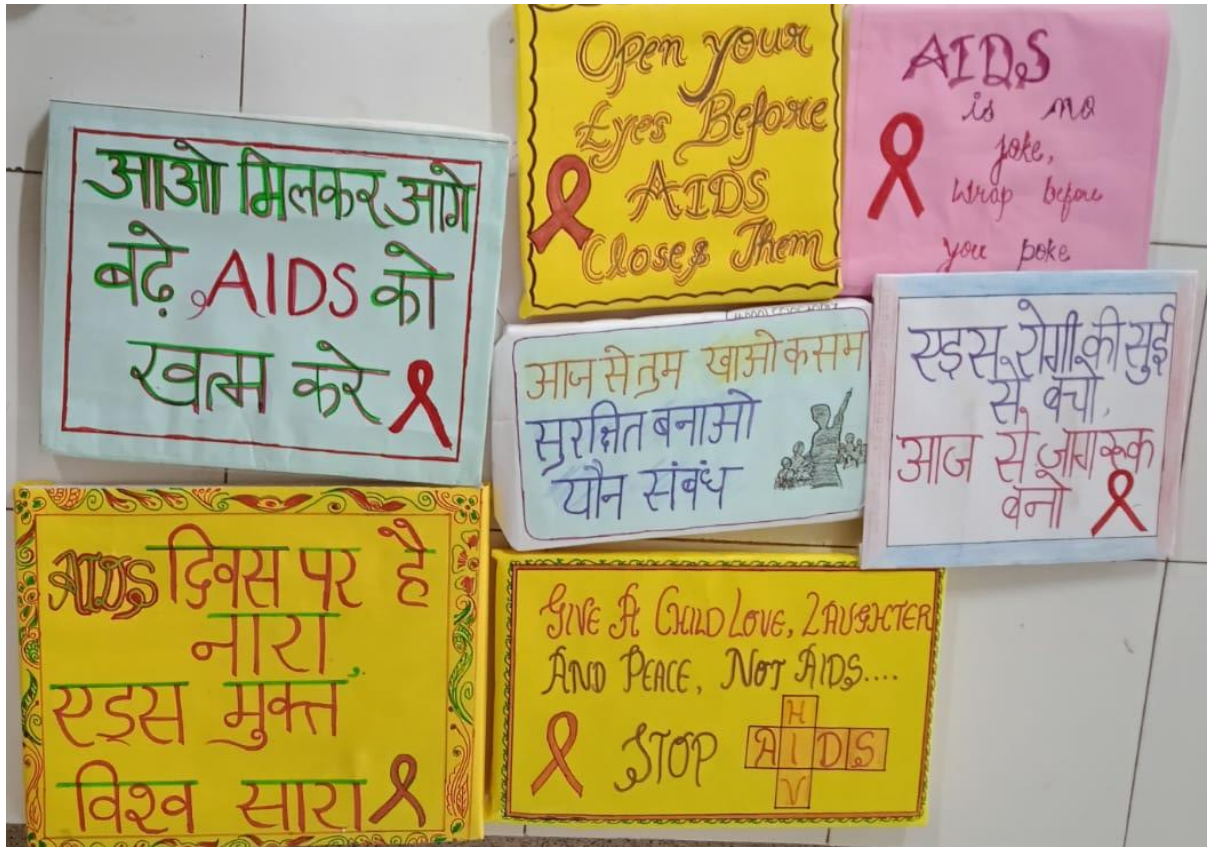 आओ मिलकर आगे
बढ़े, AIDS को
खत्म करे
Open your
Eyes Before
AIDS
Closes Them
AIDS
is no
joke,
Wrap before
you poke
आज से तुम खाओ कसम
सुरक्षित बनाओ
यौन संबंध
एड्स रोगी की सुई
से बचो,
आज से जागरूक
बनो
AIDS दिवस पर है
नारा,
एड्स मुक्त
विश्व सारा
GIVE A CHILD LOVE, LAUGHTER
AND PEACE, NOT AIDS....
STOP
H
AIDS
V